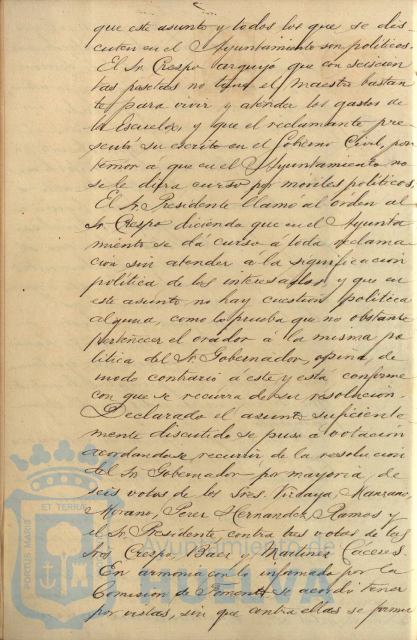 que este asunto y todos los que se dis-
cuten en el Ayuntamiento son políticos.
El Sr. Crespo arguyó que con seiscien
tas pesetas no tiene el maestro bastan
te para vivir y atender los gastos de
la Escuela, y que el reclamante pre
sentó su escrito en el Gobierno Civil, por
temor á que en el Ayuntamiento no
se le diera curso por móviles políticos.
El Sr. Presidente llamó al orden al
Sr. Crespo diciendo que en el Ayunta
miento se dá curso á toda reclama
ción sin atender á la significación
política de los interesados, y que en
este asunto no hay cuestión política
alguna, como lo prueba que no obstante
pertenecer el orador á la misma po
lítica del Sr. Gobernador, opina de
modo contrario á este y está conforme
con que se recurra de su resolución.
Declarado el asunto suficiente
mente discutido se puso á votación
acordandose recurrir de la resolución
del Sr. Gobernador por mayoría de
seis votos de los Sres. Manzano
Morano, Perez Hernandez, Ramos y
el Sr. Presidente contra tres votos de los
Sres. Crespo, Baez y Martinez Caceres.
En armonia con lo informado por la
Comision de Fomento se acordó tener
por vistas, sin que contra ellas se forme
PORTUS MARIS ET TERRAE
Ayuntamiento de
HUELVA